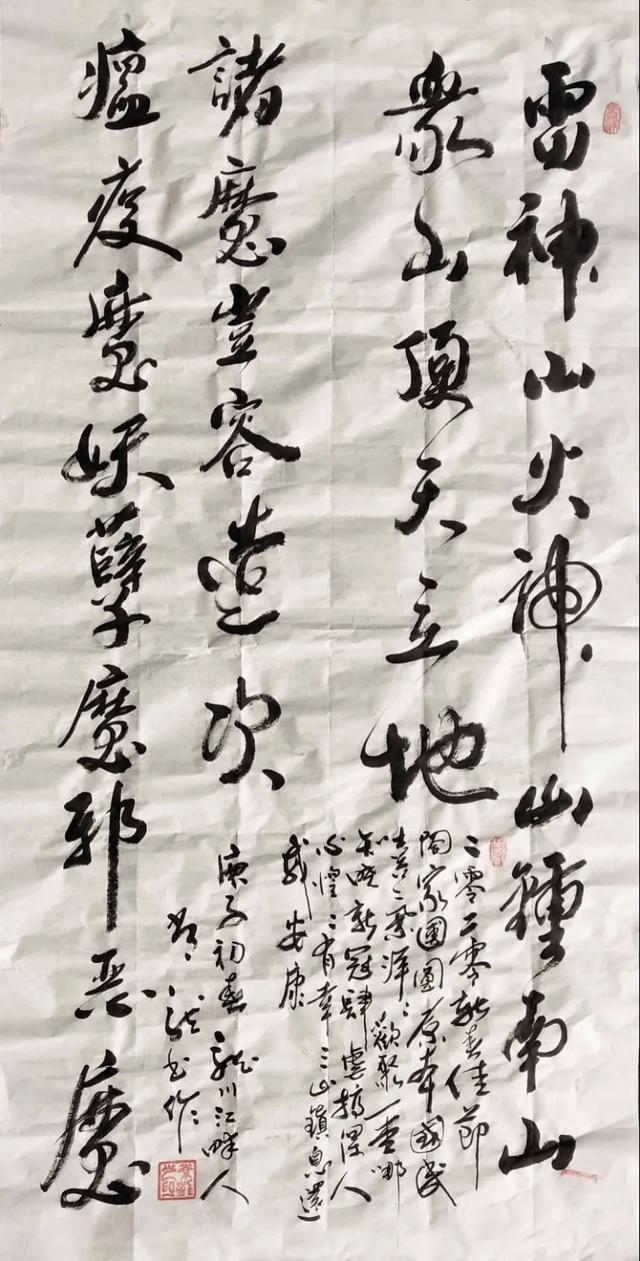 雷神山火神山鍾南山
衆山頂天立地
諸魔豈容造次
瘟疫魔妖孽魔邪惡魔
二零二零新春佳節
闔家團圓原本國民
喜〻慶洋〻歡聚一堂哪
知曉新冠肆虐搞得人
心惶〻有幸三山鎮鬼還
我安康
庚子初春 龍川江畔人
龍書作